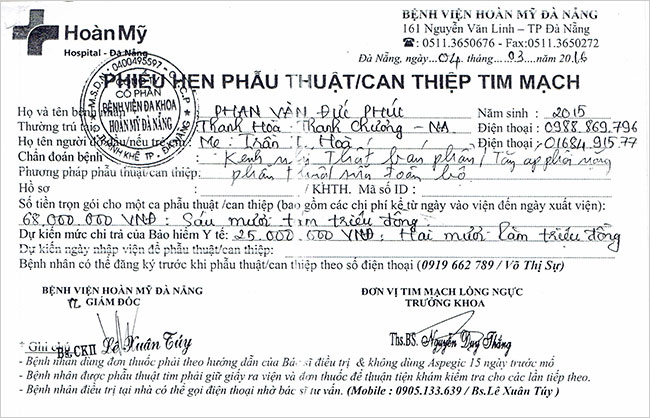 Hoàn Mỹ
Hospital - Đà Nẵng
BỆNH VIỆN HOÀN MỸ ĐÀ NẴNG
161 Nguyễn Văn Linh – TP Đà Nẵng
☎: 0511.3650676 - Fax:0511.3650272
Đà Nẵng, ngày 04 tháng 03 năm 2016
PHIẾU HẸN PHẪU THUẬT/CAN THIỆP TIM MẠCH
M.S.D.N: 0400495597
CỔ PHẦN
BỆNH VIỆN ĐA KHOA
HOÀN MỸ ĐÀ NẴNG
THANH KHÊ TP. ĐÀ NẴNG
Họ và tên bệnh nhân PHAN VĂN ĐỨC PHÚC Năm sinh : 2015
Thường trú tại Thanh Hòa - Thanh Chương - NA Điện thoại : 0988.869.796
Họ tên người đi nếu trẻ em Mẹ: Trần T. Hoà / Điện thoại : 01684.915.77
Chẩn đoán bệnh : Kênh nhĩ thất bán phần / Tăng áp phổi nặng
Phương pháp phẫu thuật/can thiệp : phẫu thuật sửa toàn bộ
Hồ sơ : / KHTH. Mã số ID :
Số tiền trọn gói cho một ca phẫu thuật /can thiệp (bao gồm các chi phí kể từ ngày vào viện đến ngày xuất viện):
68.000.000 VNĐ : Sáu mươi tám triệu đồng
Dự kiến mức chi trả của Bảo hiểm Y tế: 25.000.000 VNĐ: Hai mươi lăm triệu đồng
Dự kiến ngày nhập viện để phẫu thuật/can thiệp:
Bệnh nhân có thể đăng ký trước khi phẫu thuật/can thiệp theo số điện thoại (0919 662 789 / Võ Thị Sự)
BỆNH VIỆN HOÀN MỸ ĐÀ NẴNG
GIÁM ĐỐC
ĐƠN VỊ TIM MẠCH LỒNG NGỰC
TRƯỞNG KHOA
Bs.CKII Lê Xuân Túy
Ths.BS. Nguyễn Duy Thắng
* Ghi chú
- Bệnh nhân dùng đơn thuốc phải theo hướng dẫn của Bác sĩ điều trị & không dùng Aspegic 15 ngày trước mổ
- Bệnh nhân được phẫu thuật tim phải giữ giấy ra viện và đơn thuốc để thuận tiện khám kiểm tra cho các lần tiếp theo.
- Bệnh nhân điều trị tại nhà có thể gọi điện thoại nhờ bác sĩ tư vấn. (Mobile : 0905.133.639 / Bs.Lê Xuân Túy )